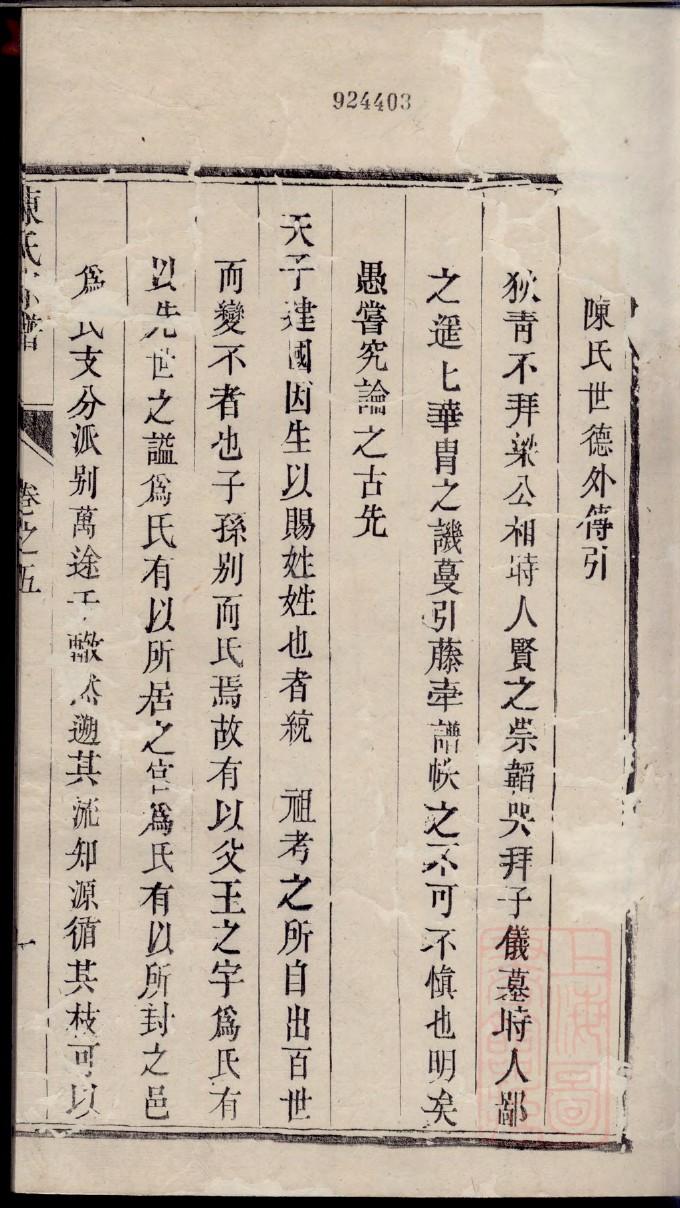 924403
陳氏世德外傳引
狄青不拜梁公相時人賢之崇韜哭拜子儀墓時人鄙
之遥上華胄之譏蔓引藤牽譜帙之不可不慎也明矣
愚嘗究論之古先
天子建國因生以賜姓姓也者統 祖考之所自出百世
而變不者也子孫别而氏焉故有以父王之字爲氏有
以先世之謚爲氏有以所居之官爲氏有以所封之邑
爲氏支分派别萬途千轍然遡其流知源循其枝可以
陳氏宗譜 卷之五 一
上海圖